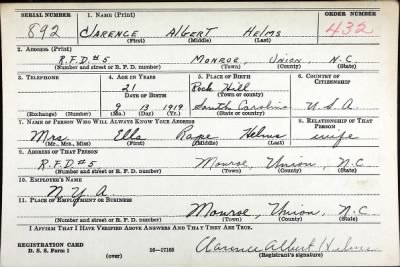 SERIAL NUMBER 1. NAME (Print) ORDER NUMBER
892 CLARENCE ALBERT HELMS 432
(First) (Middle) (Last)
2. ADDRESS (Print)
R.F.D. #5 MONROE, UNION, N.C
(Number and street or R. F. D. number) (Town) (County) (State)
3. TELEPHONE 4. AGE IN YEARS 5. PLACE OF BIRTH 6. COUNTRY OF CITIZENSHIP
21 Rock Hill
DATE OF BIRTH (Town or county)
9 13 1919 South Carolina U.S.A
(Exchange) (Number) (Mo.) (Day) (Yr.) (State or country)
7. NAME OF PERSON WHO WILL ALWAYS KNOW YOUR ADDRESS 8. RELATIONSHIP OF THAT PERSON
Mrs. Ella Rape Helms wife
(Mr., Mrs., Miss) (First) (Middle) (Last)
9. ADDRESS OF THAT PERSON
R.F.D #5 Monroe, Union, N.C
(Number and street or R. F. D. number) (Town) (County) (State)
10. EMPLOYER'S NAME
N.Y.A
11. PLACE OF EMPLOYMENT OR BUSINESS
Monroe, Union, N.C.
(Number and street or R. F. D. number) (Town) (County) (State)
I AFFIRM THAT I HAVE VERIFIED ABOVE ANSWERS AND THAT THEY ARE TRUE.
REGISTRATION CARD
D. S. S. Form 1 (over) 16—17105 Clarence Albert Helms
(Registrant's signature)